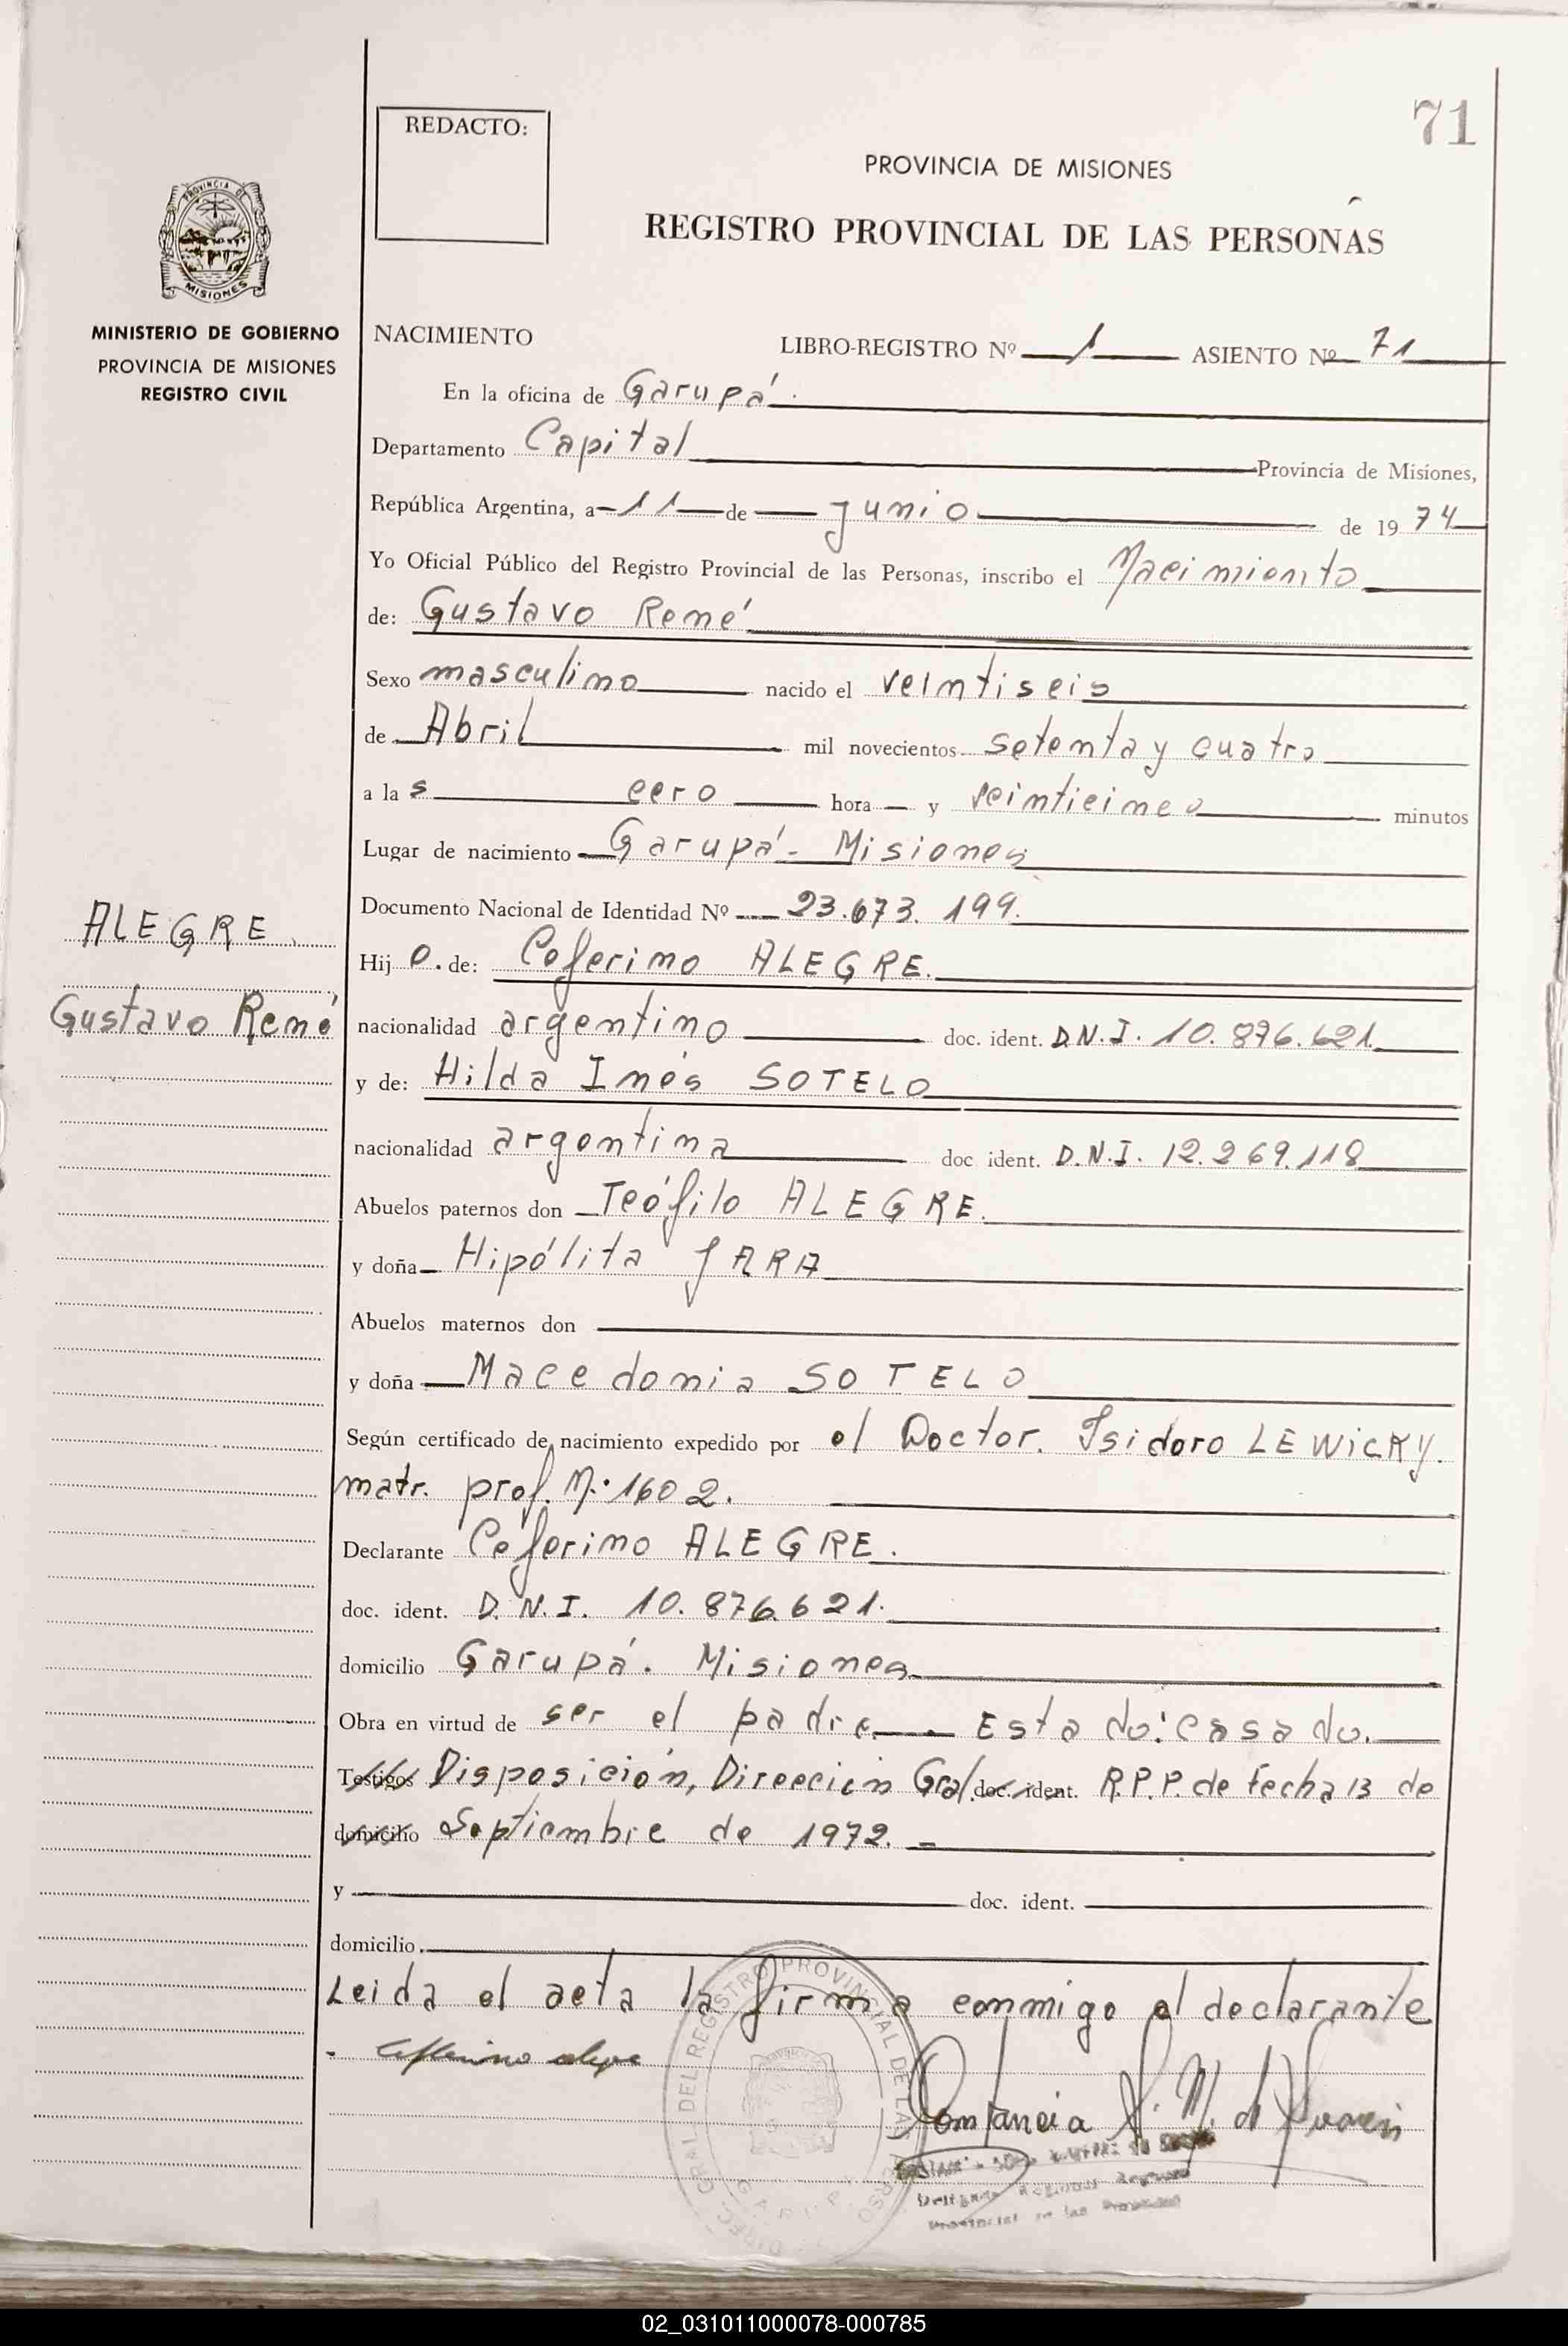 71
REDACTO:
PROVINCIA DE MISIONES
REGISTRO PROVINCIAL DE LAS PERSONAS
PROVINCIA DE
MISIONES
MINISTERIO DE GOBIERNO
PROVINCIA DE MISIONES
REGISTRO CIVIL
NACIMIENTO LIBRO-REGISTRO Nº 1 ASIENTO Nº 71
En la oficina de Garupá.
Departamento Capital Provincia de Misiones,
República Argentina, a 11 de junio de 1974
Yo Oficial Público del Registro Provincial de las Personas, inscribo el Nacimiento
de: Gustavo René
Sexo masculino nacido el veintiseis
de Abril mil novecientos setenta y cuatro
a las cero hora y veinticinco minutos
Lugar de nacimiento Garupá - Misiones
Documento Nacional de Identidad Nº 23.673.199.
Hijo. de: Ceferino ALEGRE.
ALEGRE
Gustavo René
nacionalidad argentino doc. ident. D.N.I. 10.876.621.
y de: Hilda Inés SOTELO
nacionalidad argentina doc ident. D.N.I. 12.269.118
Abuelos paternos don Teófilo ALEGRE.
y doña Hipólita JARA
Abuelos maternos don
y doña Macedonia SOTELO
Según certificado de nacimiento expedido por el Doctor. Isidoro LEWICKY.
matr. prof. N.º 1602.
Declarante Ceferino ALEGRE.
doc. ident. D.N.I. 10.876.621.
domicilio Garupá. Misiones
Obra en virtud de ser el padre. Estado: casado.
Testigos Disposición, Dirección Gral. doc. ident. R.P.P. de Fecha 13 de
domicilio Septiembre de 1972.-
y doc. ident.
domicilio.
Leida el acta la firma conmigo el declarante
Ceferino alegre
Constancia
DIREC. GRAL. DEL REGISTRO PROVINCIAL DE LAS PERSO
02_031011000078-000785